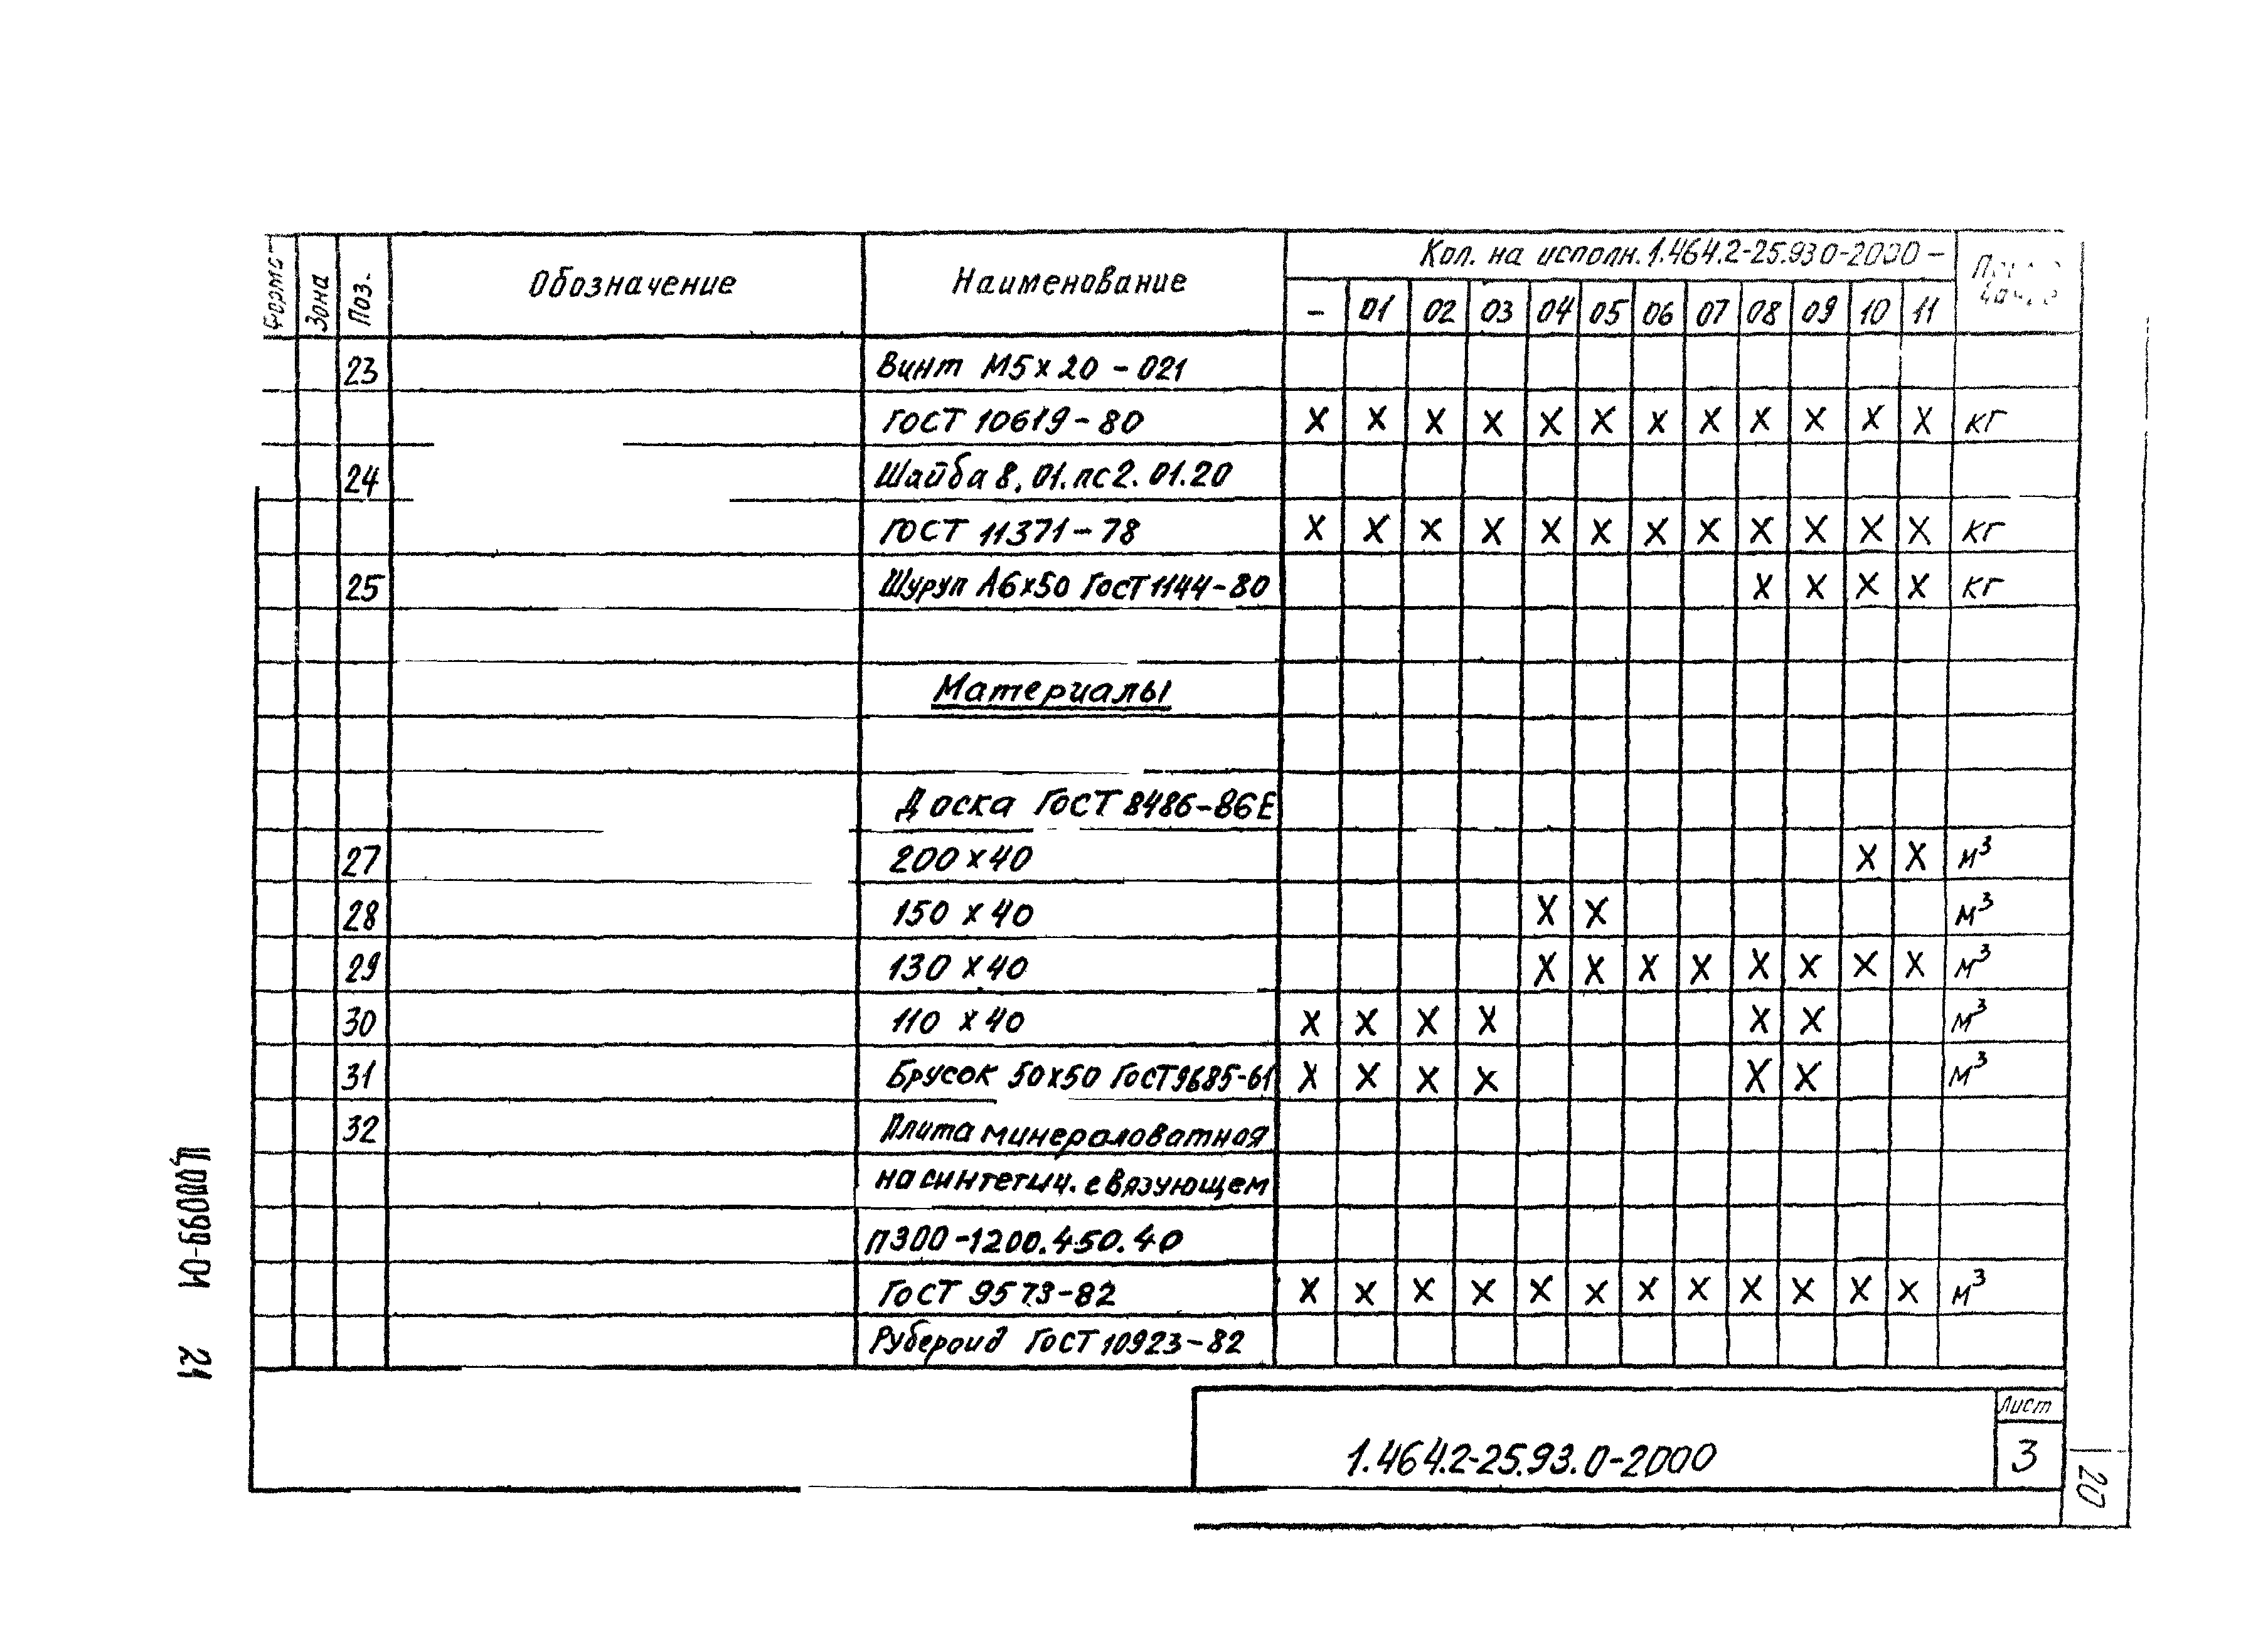 Формат Зона Поз. Обозначение Наименование Кол. на исполн. 1.464.2-25.93 0-2000 -
- 01 02 03 04 05 06 07 08 09 10 11
23 Винт М5х20 - 021
ГОСТ 10619-80 X X X X X X X X X X X X кг
24 Шайба 8.01.пс2.01.20
ГОСТ 11371-78 X X X X X X X X X X X X кг
25 Шуруп А6х50 ГОСТ 1144-80 X X X X кг
Материалы
Доска ГОСТ 8486-86Е
27 200 х 40 X X м³
28 150 х 40 X X м³
29 130 х 40 X X X X X X X X м³
30 110 х 40 X X X X X X м³
31 Брусок 50х50 ГОСТ 9685-61 X X X X X X м³
32 Плита минераловатная
на синтетич. связующем
П300-1200.450.40
ГОСТ 9573-82 X X X X X X X X X X X X м³
Рубероид ГОСТ 10923-82
1.464.2-25.93.0-2000
Лист
3
20
Ц00099-01 21